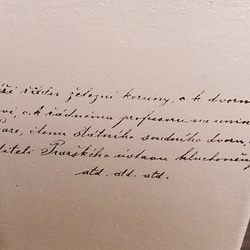 řádu železné koruny, c. k. dvorn
ovi, c. k. řádnému professoru na univ
Praze, členu státního soudního dvoru,
diteli Pražského ústavu hluchoněm
atd. atd. atd.